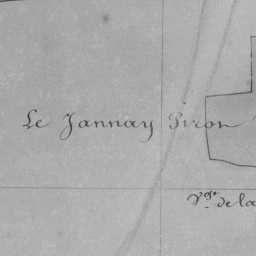 Le Jannay Piron
V.gse de la